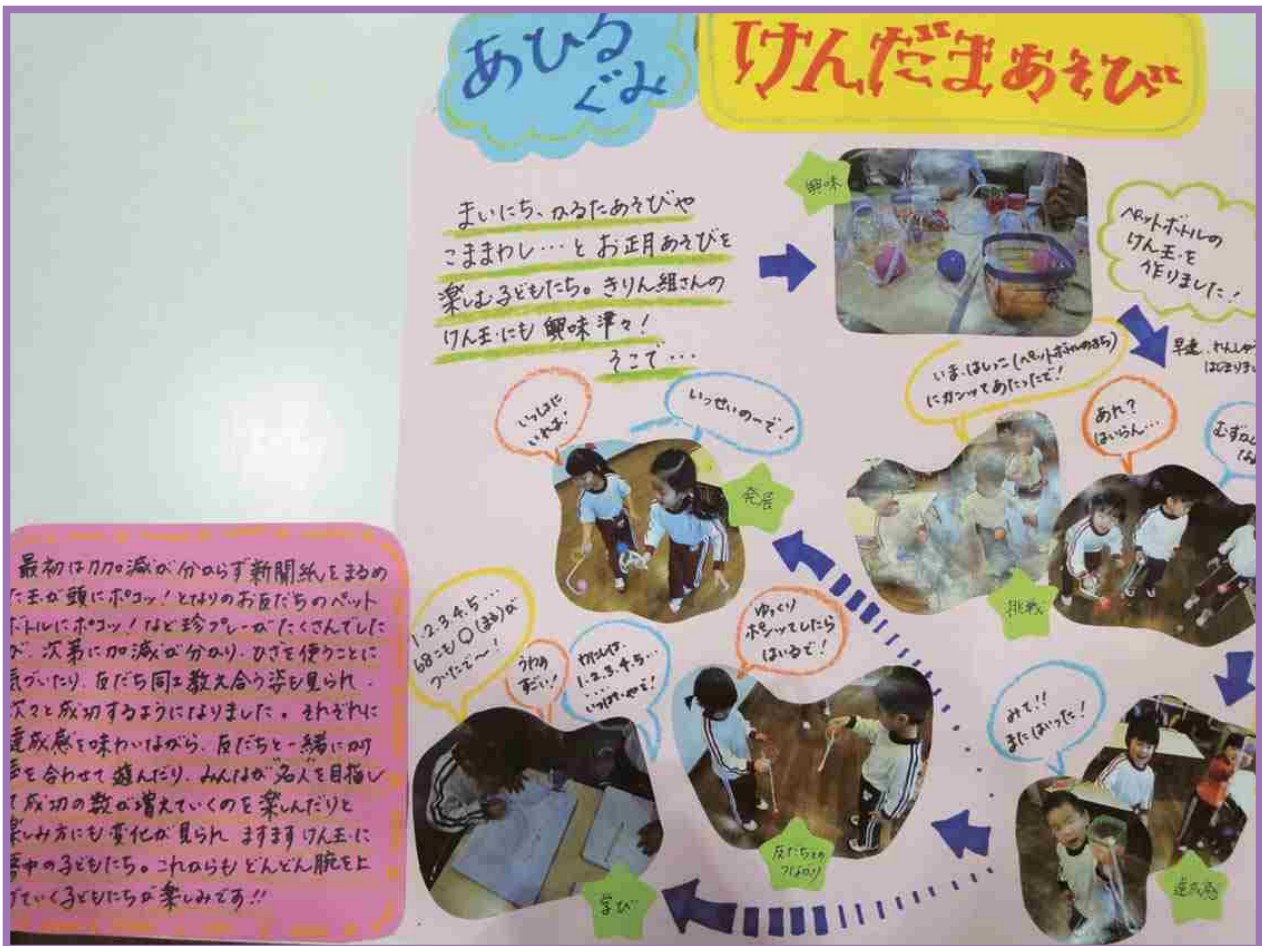 あひる
ぐみ
けんだまあそび
まいにち、かるたあそびや
こままわし…と お正月あそびを
楽しむ子どもたち。きりん組さんの
けん玉にも 興味津々！
そこで…
興味
ペットボトルの
けん玉を
作りました！
早速、れんしゅう
はじまりまし
いま、はしっこ(ペットボトルのふち)
にカンッてあたったで！
あれ？
はいらん…
むずかし
挑戦
みて!!
またはいった！
達成感
ゆっくり
ポンッてしたら
はいるで！
友だちとの
つながり
いっしょに
いれよ！
いっせいのーで！
発展
1.2.3.4.5…
68こも〇(まる)が
ついたで〜！
うわぁ
すごい！
わたしは、
1.2.3.4.5…
‥‥
いっぱいやで！
学び
最初は力加減が分からず新聞紙をまるめ
た玉が頭にポコッ！となりのお友だちのペット
ボトルにポコッ！など珍プレーがたくさんでした
が、次第に加減が分かり、ひざを使うことに
気づいたり、友だち同士教え合う姿も見られ、
次々と成功するようになりました。それぞれに
達成感を味わいながら、友だちと一緒にかけ
声を合わせて遊んだり、みんなが“名人”を目指し
て成功の数が増えていくのを楽しんだりと
楽しみ方にも変化が見られ ますますけん玉に
夢中の子どもたち。これからもどんどん腕を上
げていく子どもたちが楽しみです!!